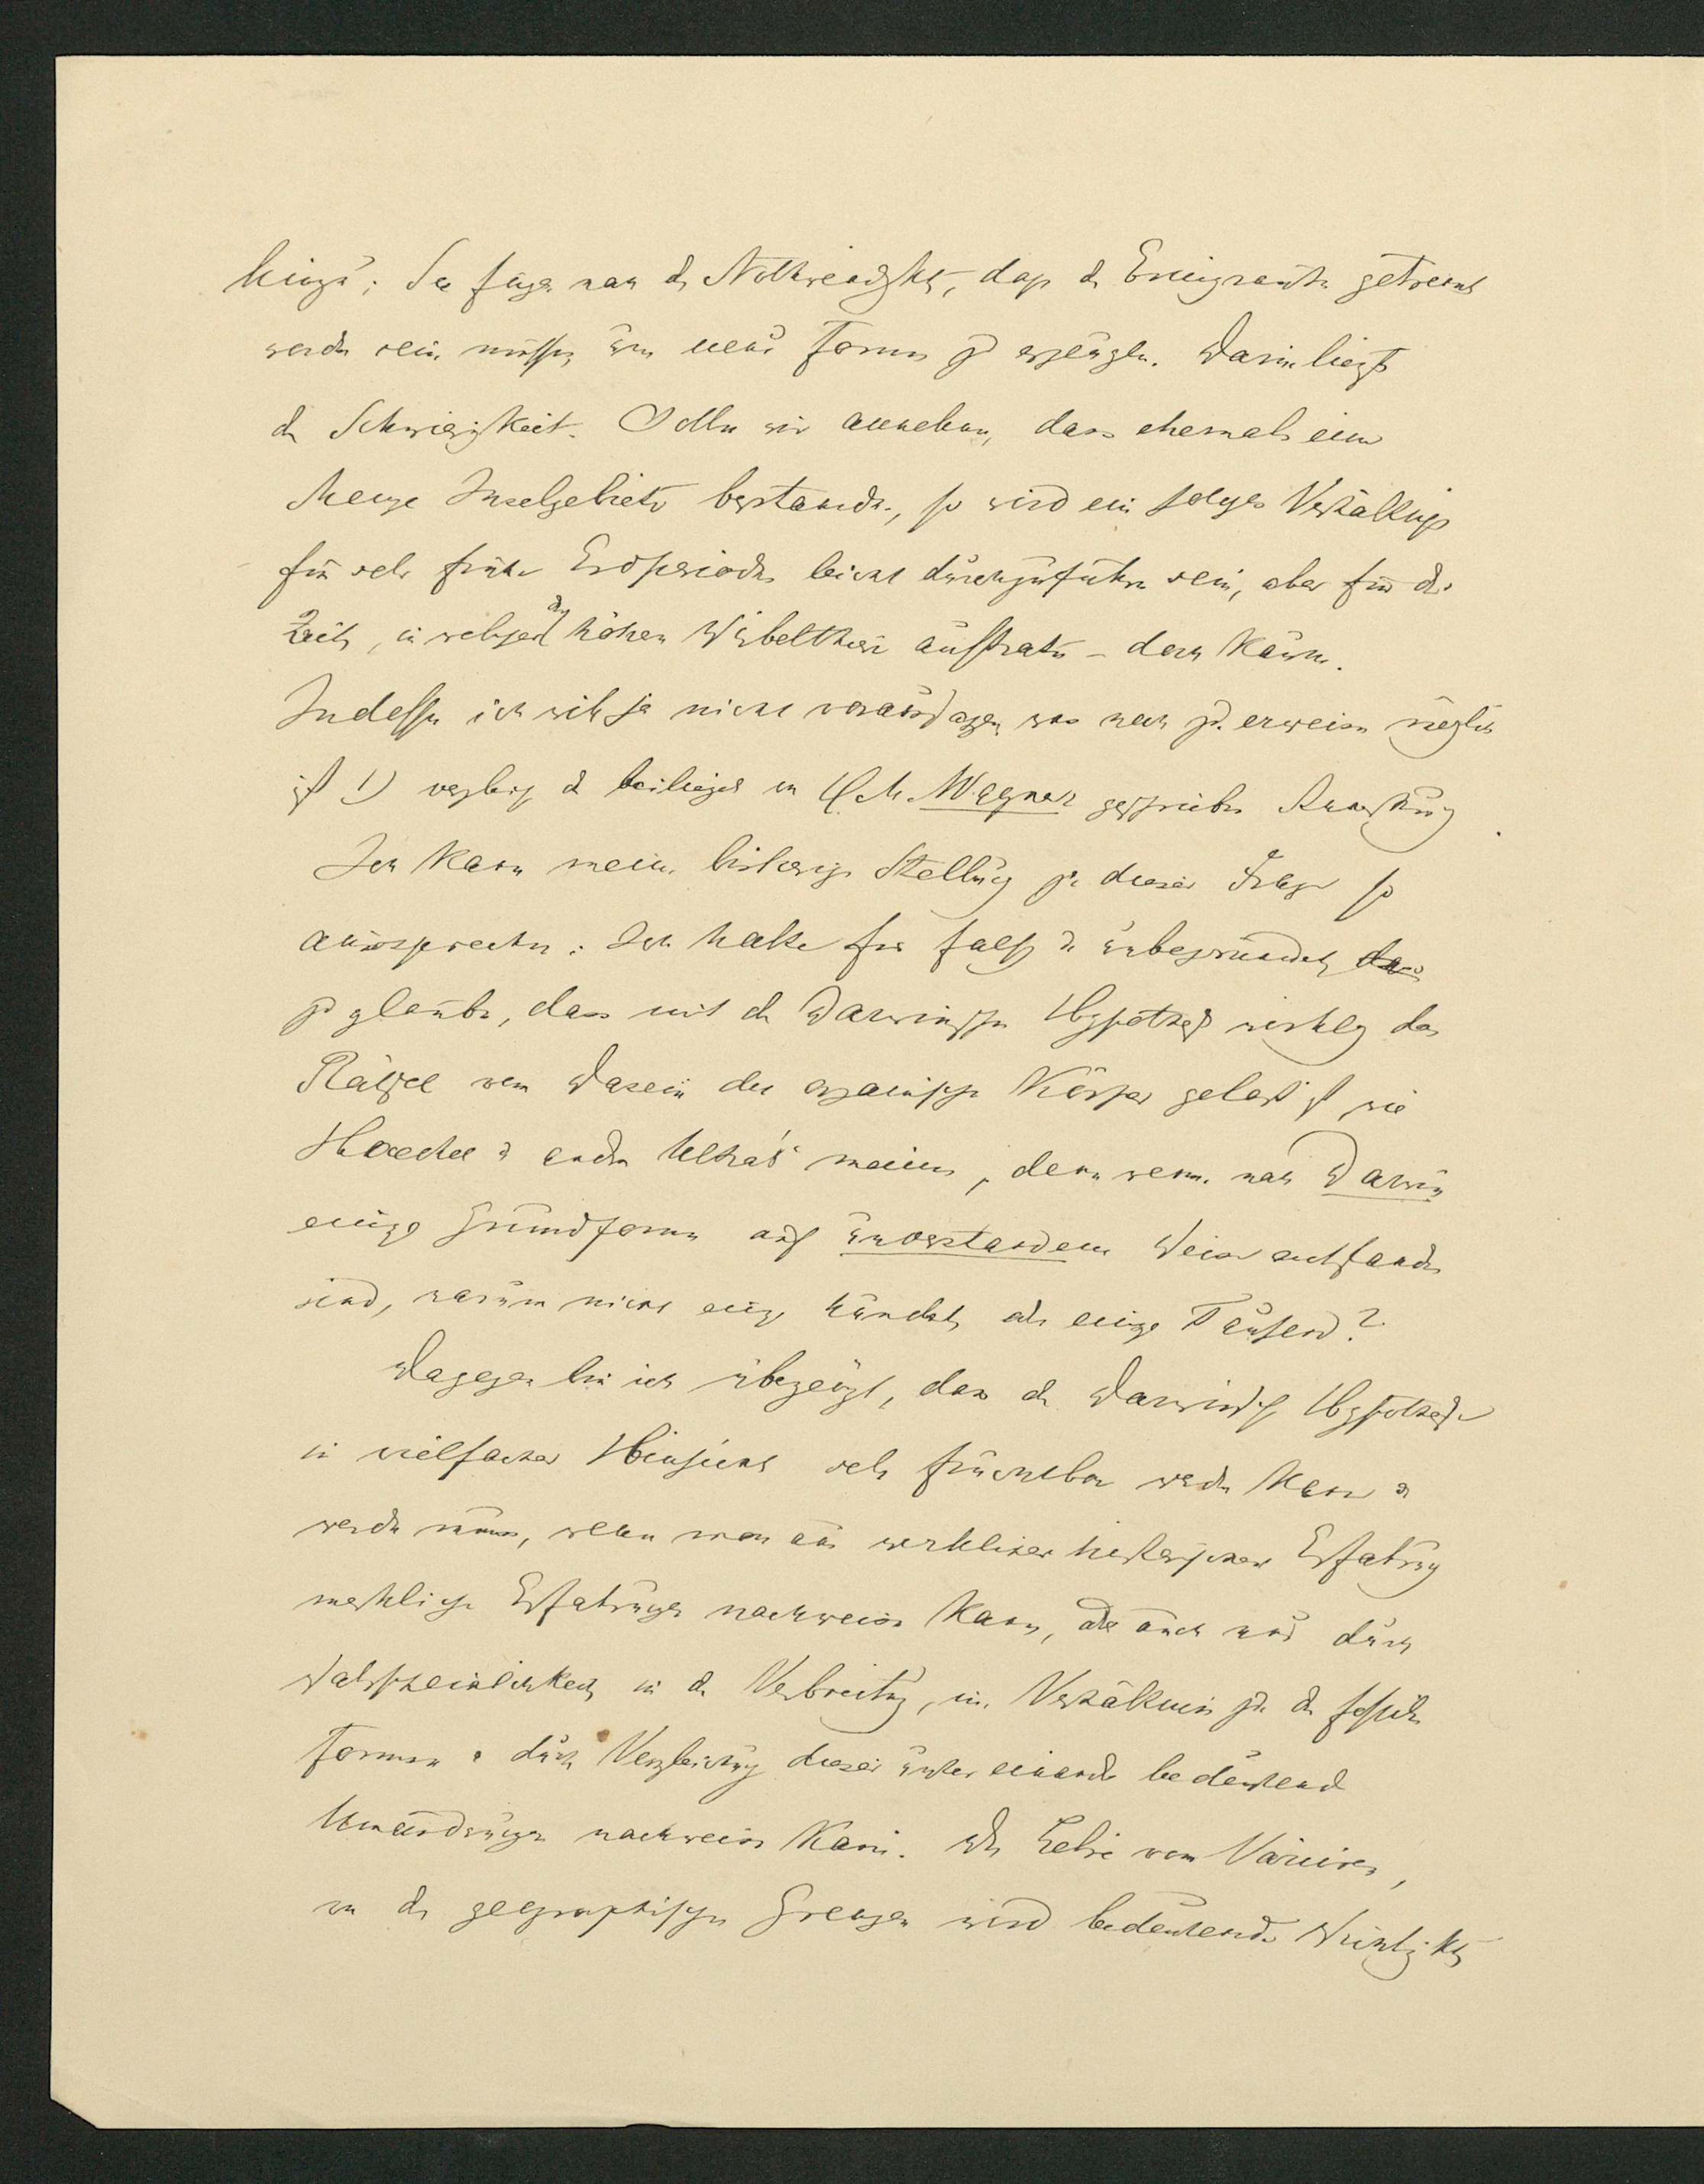 hinzu; Sie fügen nach die Nothwendigkeit, daß die Emigranten getrennt
werden sein müssen um neue Formen zu erzeugen. Darin liegt
die Schwierigkeit. Sollen wir annehmen, dass ehemals eine
Menge Inselgebiete bestanden, so wird ein solches Verhältniß
für sehr frühe Erdperioden leicht durchzuführen sein, aber für die
Zeit, in welcher die höheren Wirbelthiere auftraten – doch kaum.
Indessen ich will ja nicht voraussagen was noch zu erweisen möglich
ist 1) vergleiche die beiliegende an H. M. Wagner geschriebene Anmerkung
Ich kann meine bisherige Stellung zu dieser Frage so
aussprechen: Ich halte für falsch & unbegründet
zu glauben, dass mit der Darwinschen Hypothese wirklich das
Räthsel vom Dasein der organischen Körper gelöst ist wie
Haeckel & andere Ultras meinen, denn wenn nach Darwin
einige Grundformen auf unverstandene Weise entstanden
sind, warum nicht einige hundert oder einige Tausend?
Dagegen bin ich überzeugt, dass die Darwinsche Hypothese
in vielfacher Hinsicht sehr fruchtbar werden kann &
werden muss, wenn man aus wirklicher historischer Erfahrung
Erfahrungen nachweisen kann, oder auch nur durch
Wahrscheinlichkeit in der Verbreitung, im Verhältniss zu den fossilen
Formen & durch Vergleichung dieser unter einander bedeutend
Umänderungen nachweisen kann. Die Lehre vom Variiren,
von den geographischen Grenzen wird bedeutende Wichtigkeit